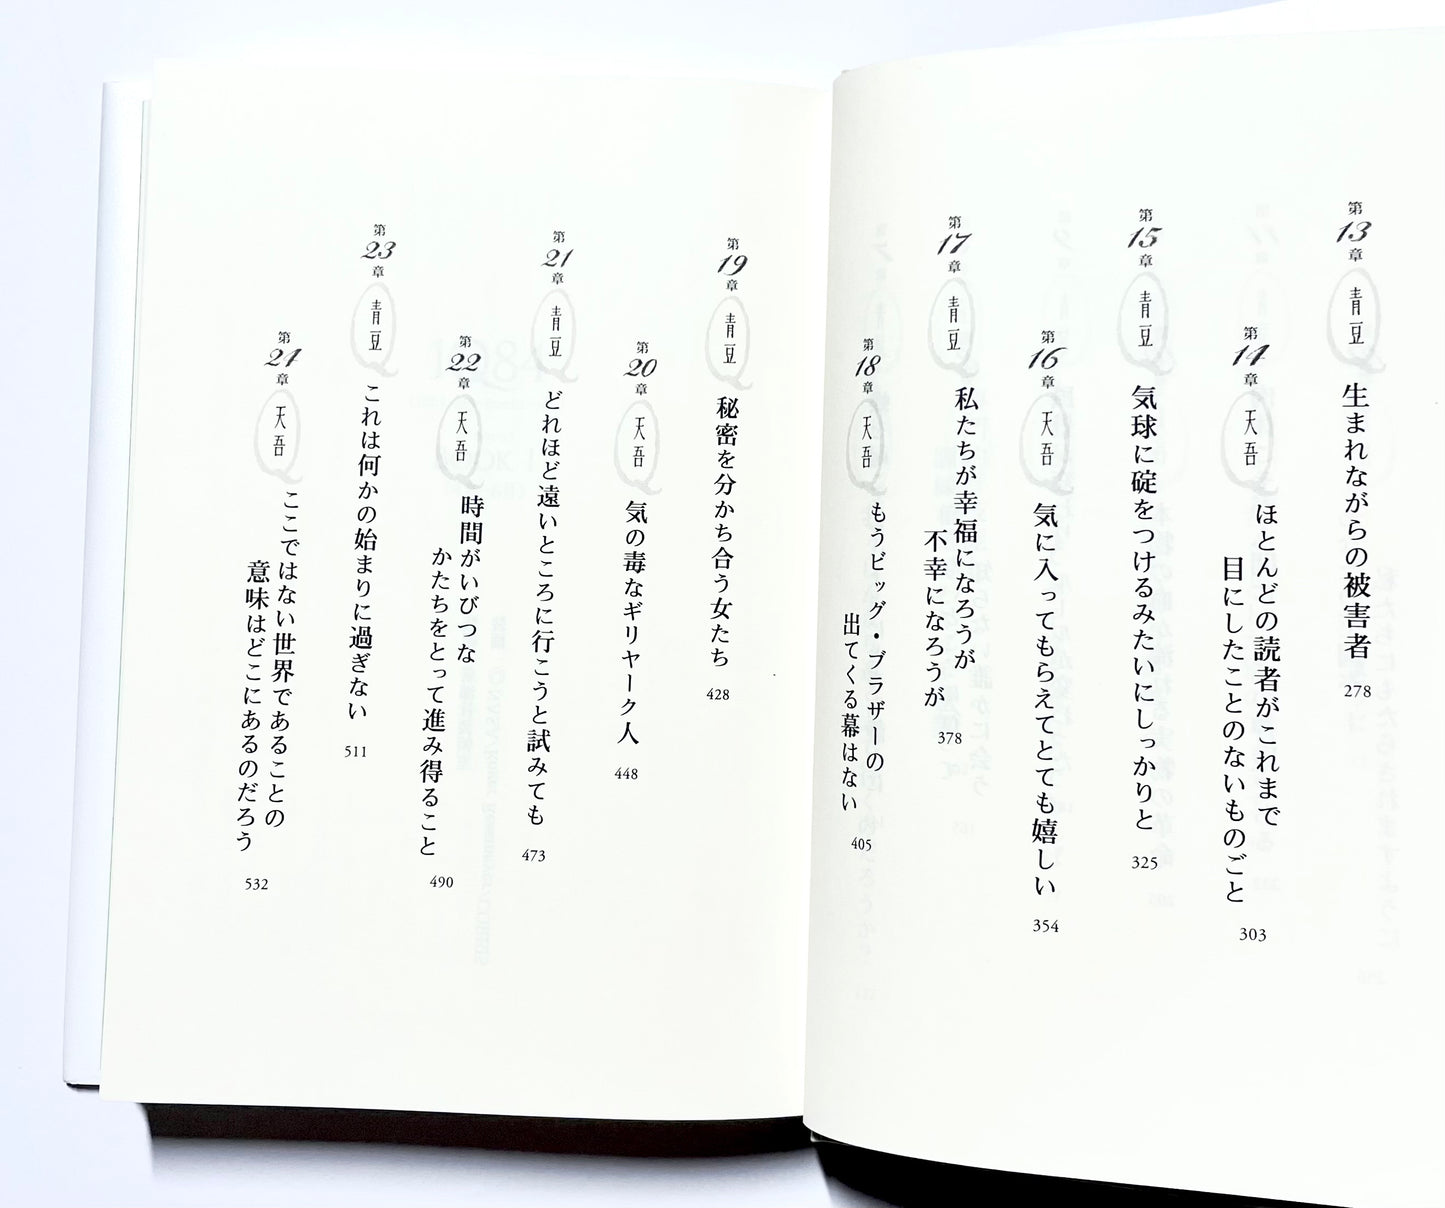 第13章
青豆
生まれながらの被害者
278
第14章
天吾
ほとんどの読者がこれまで
目にしたことのないものごと
303
第15章
青豆
気球に碇をつけるみたいにしっかりと
325
第16章
天吾
気に入ってもらえてとても嬉しい
354
第17章
青豆
私たちが幸福になろうが
不幸になろうが
378
第18章
天吾
もうビッグ・ブラザーの
出てくる幕はない
405
第19章
青豆
秘密を分かち合う女たち
428
第20章
天吾
気の毒なギリヤーク人
448
第21章
青豆
どれほど遠いところに行こうと試みても
473
第22章
天吾
時間がいびつな
かたちをとって進み得ること
490
第23章
青豆
これは何かの始まりに過ぎない
511
第24章
天吾
ここではない世界であることの
意味はどこにあるのだろう
532